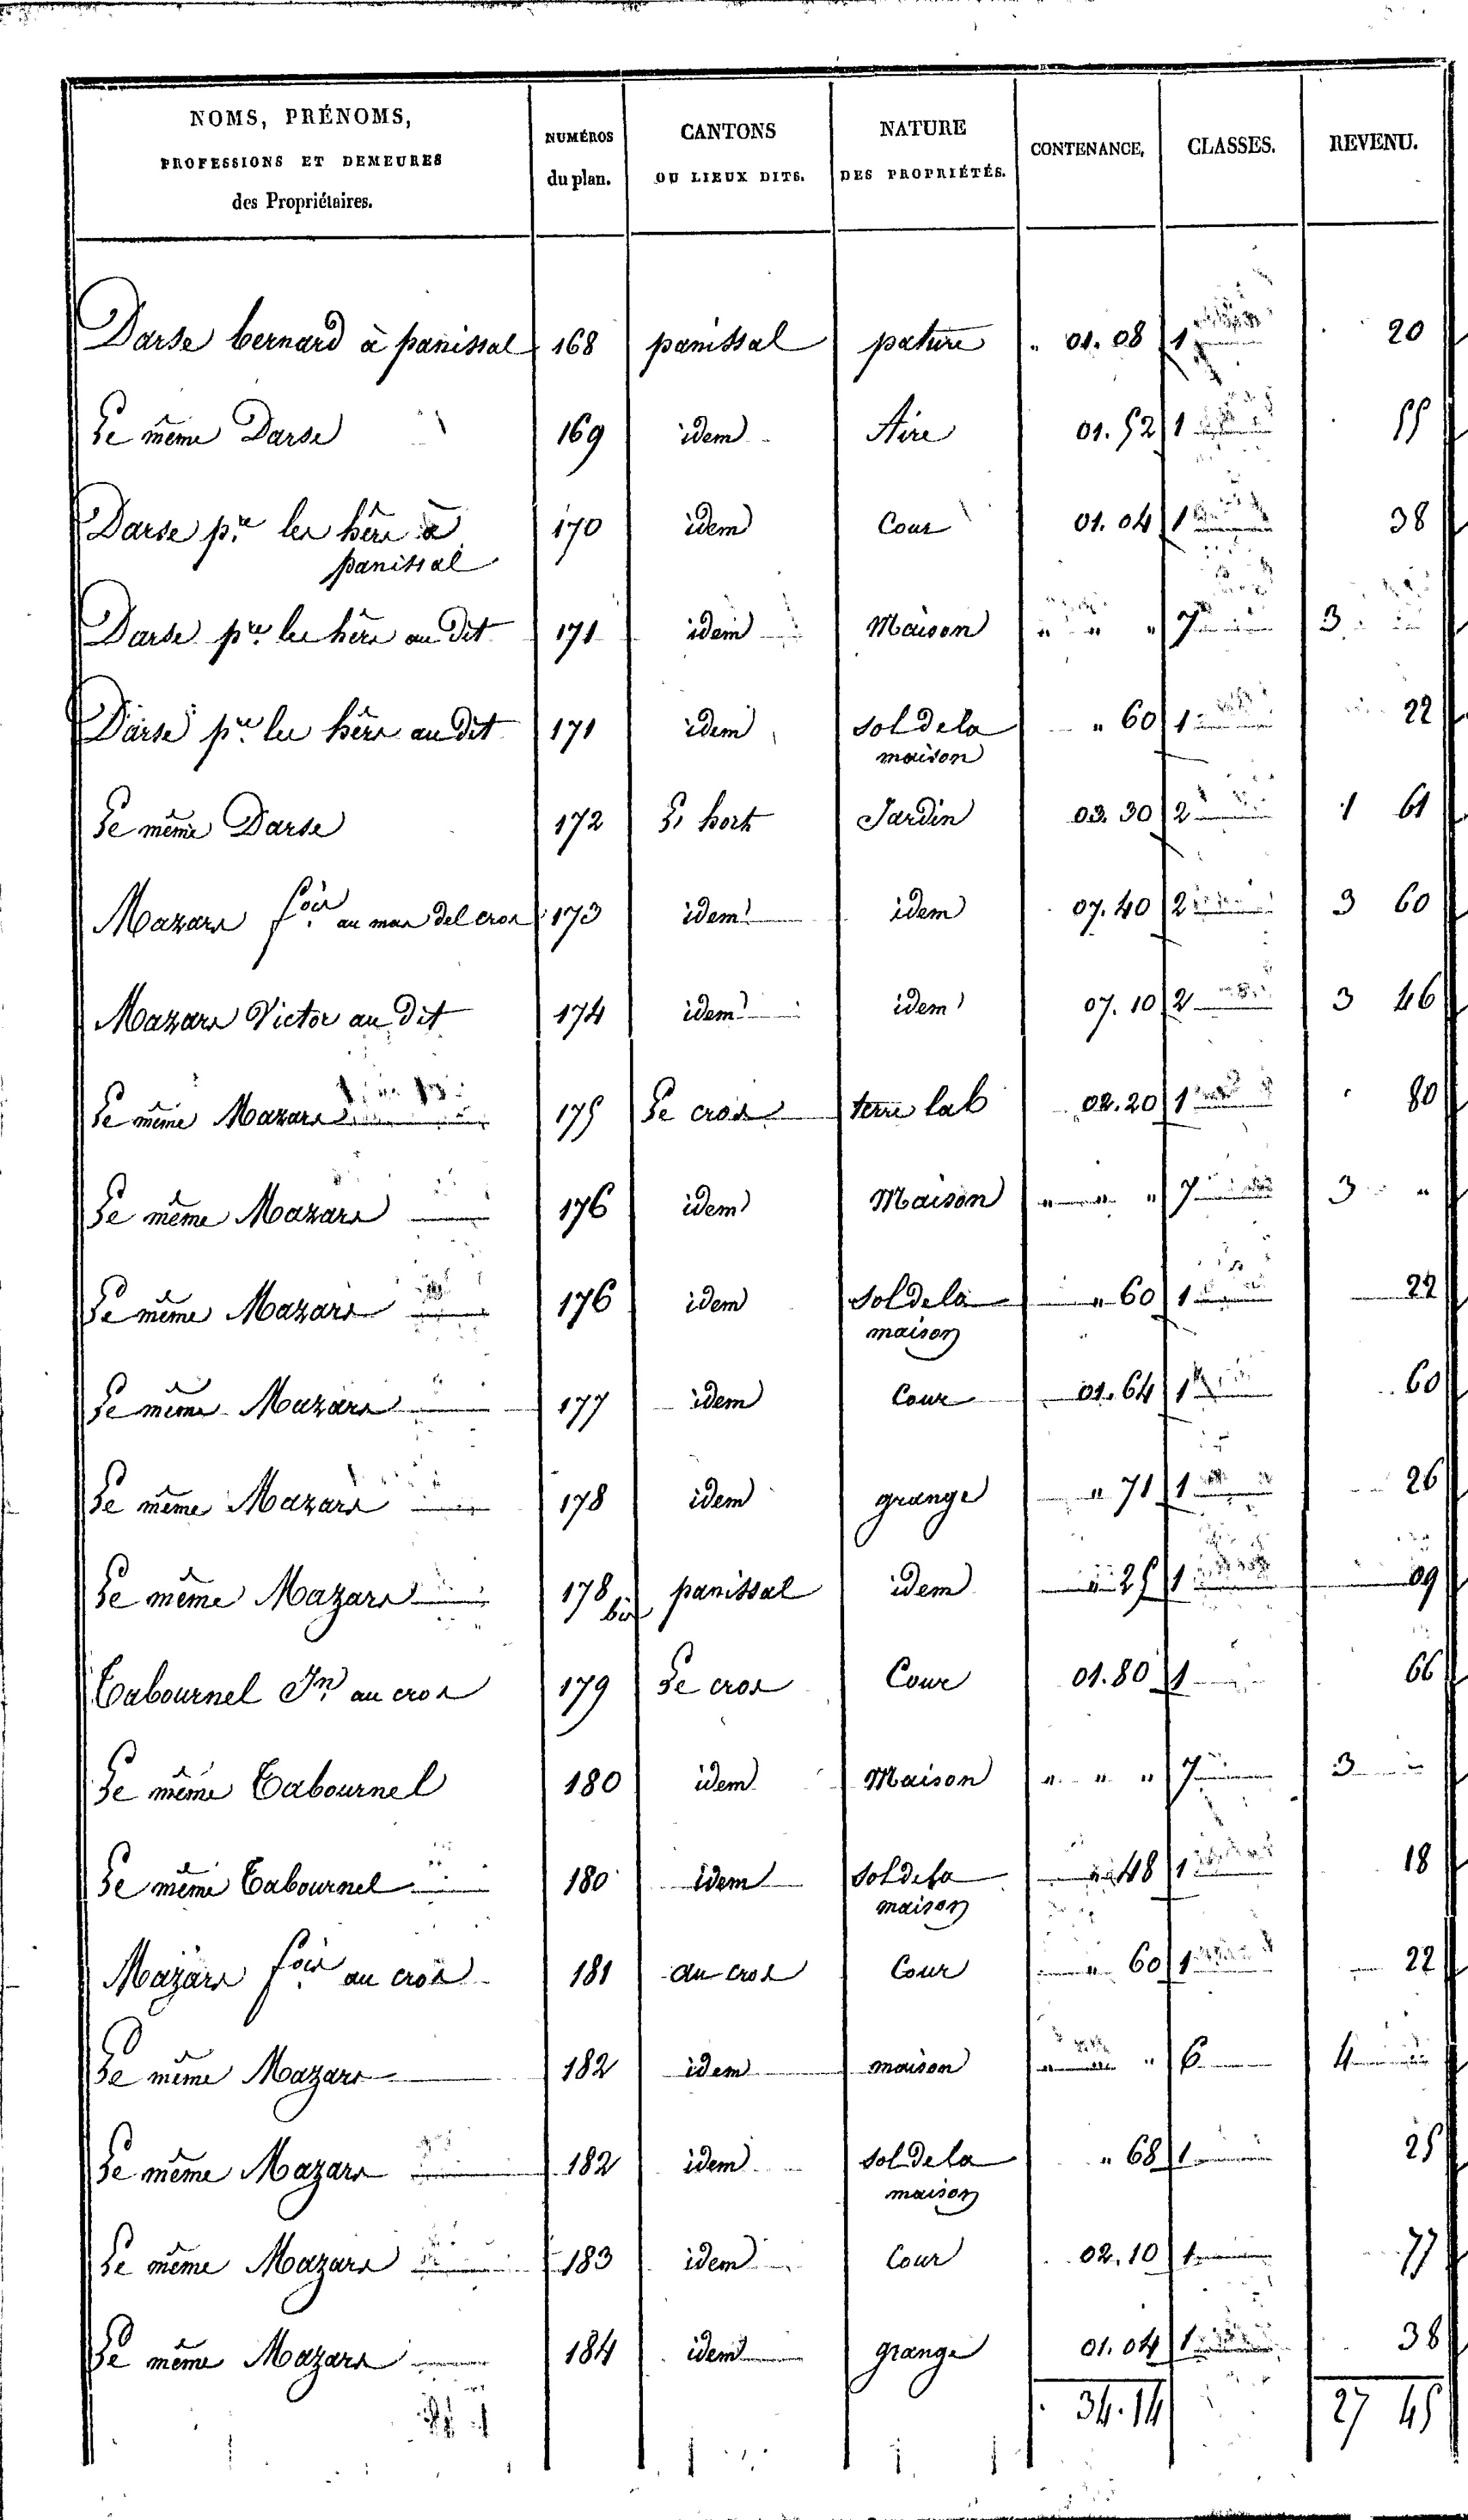 NOMS, PRÉNOMS,
PROFESSIONS ET DEMEURES
des Propriétaires.
NUMÉROS
du plan.
CANTONS
OU LIEUX DITS.
NATURE
DES PROPRIÉTÉS.
CONTENANCE,
CLASSES.
REVENU.
Darse bernard à panissal 168 panissal pature " 01.08 1 20
Le même Darse 169 idem Aire 01.52 1 55
Darse p.re les hérs à 170 idem Cour 01.04 1 38
panissal
Darse p.re les hérs au dit 171 idem Maison " " " 7 3
Darse p.re les hérs au dit 171 idem sol de la " 60 1 22
maison
Le même Darse 172 L, hort Jardin 03.30 2 1 61
Mazars f.ois au mas del cros 173 idem idem 07.40 2 3 60
Mazars Victor au dit 174 idem idem 07.10 2 3 46
Le même Mazars 175 Le cros terre lab 02.20 1 80
Le même Mazars 176 idem Maison " " " 7 3 "
Le même Mazars 176 idem sol de la " 60 1 22
maison
Le même Mazars 177 idem Cour 01.64 1 60
Le même Mazars 178 idem grange " 71 1 26
Le même Mazars 178 bis panissal idem " 25 1 09
Cabournel Jn au cros 179 Le cros Cour 01.80 1 66
Le même Cabournel 180 idem Maison " " " 7 3
Le même Cabournel 180 idem sol de la " 48 1 18
maison
Mazars f.ois au cros 181 au cros Cour " 60 1 22
Le même Mazars 182 idem maison " " " 6 4
Le même Mazars 182 idem sol de la " 68 1 25
maison
Le même Mazars 183 idem Cour 02.10 1 77
Le même Mazars 184 idem grange 01.04 1 38
34.14 27 45